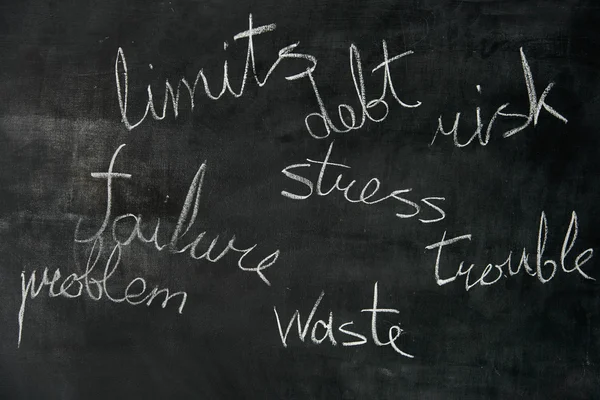 limits
debt
risk
stress
failure
trouble
problem
waste